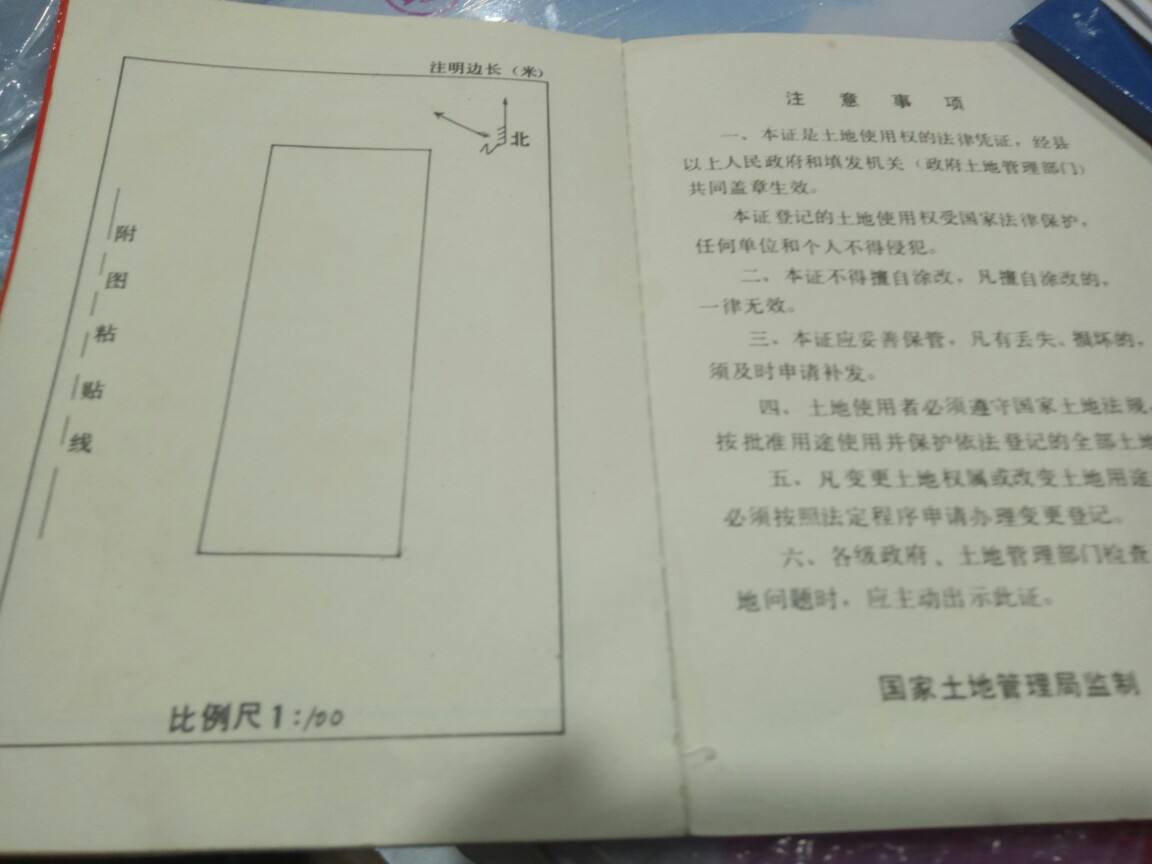 注明边长（米）
北
附
图
粘
贴
线
比例尺1:100
注意事项
一、本证是土地使用权的法律凭证，经县
以上人民政府和填发机关（政府土地管理部门）
共同盖章生效。
本证登记的土地使用权受国家法律保护，
任何单位和个人不得侵犯。
二、本证不得擅自涂改，凡擅自涂改的，
一律无效。
三、本证应妥善保管，凡有丢失、损坏的，
须及时申请补发。
四、土地使用者必须遵守国家土地法规，
按批准用途使用并保护依法登记的全部土地
五、凡变更土地权属或改变土地用途
必须按照法定程序申请办理变更登记。
六、各级政府、土地管理部门检查
地问题时，应主动出示此证。
国家土地管理局监制